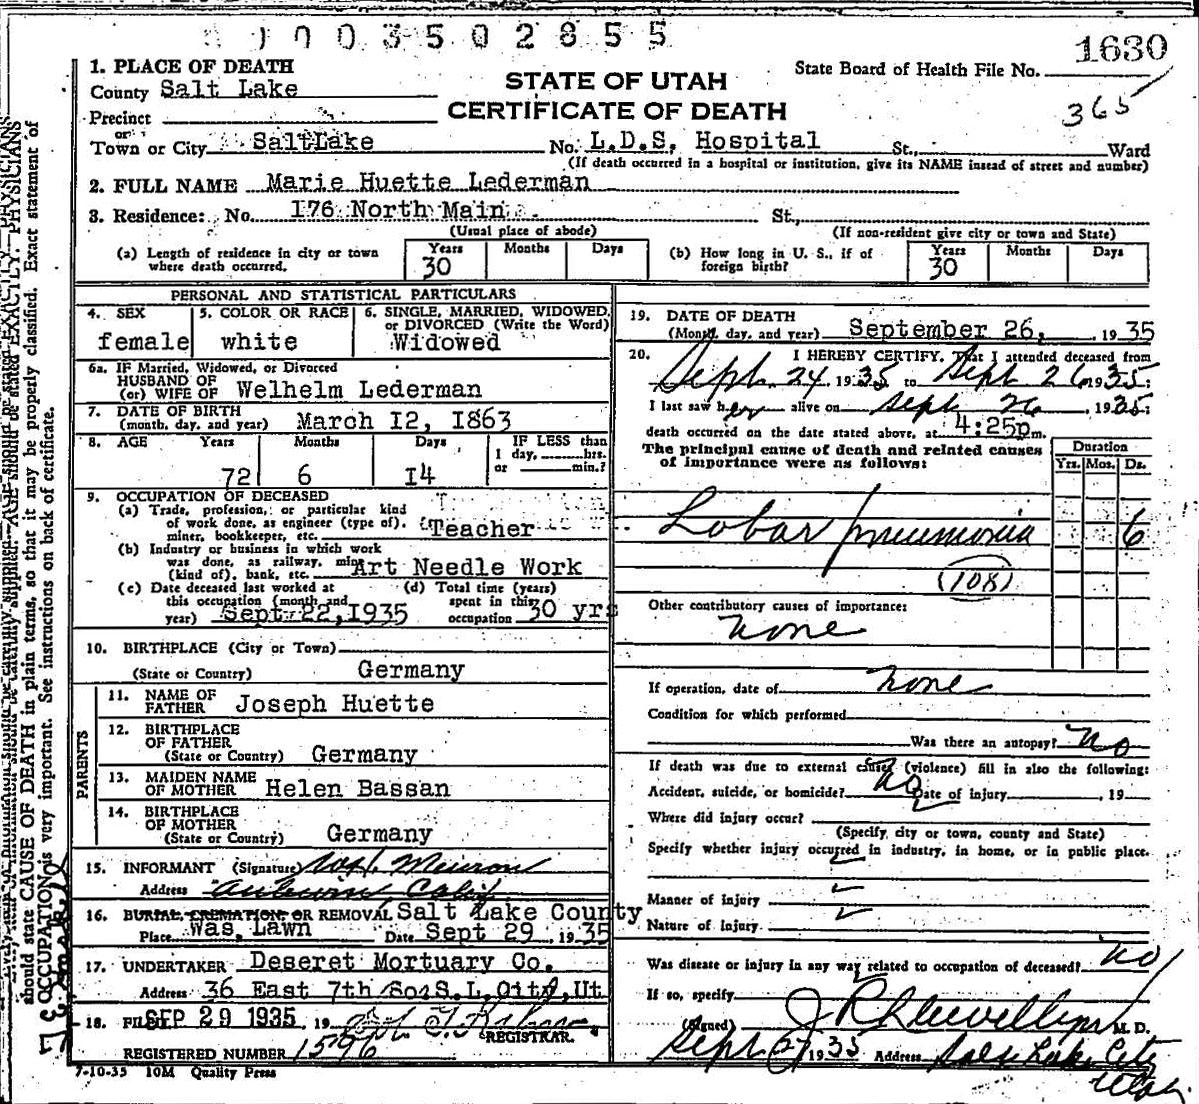 003502855
1630
1. PLACE OF DEATH
County Salt Lake
STATE OF UTAH
CERTIFICATE OF DEATH
State Board of Health File No.
365
Precinct
or
Town or City SaltLake No. L.D.S. Hospital St., Ward
(If death occurred in a hospital or institution, give its NAME insead of street and number)
2. FULL NAME Marie Huette Lederman
3. Residence: No. 176 North Main St.,
(Usual place of abode) (If non-resident give city or town and State)
(a) Length of residence in city or town where death occurred. Years 30 Months Days
(b) How long in U. S., if of foreign birth? Years 30 Months Days
PERSONAL AND STATISTICAL PARTICULARS
4. SEX female
5. COLOR OR RACE white
6. SINGLE, MARRIED, WIDOWED, or DIVORCED (Write the Word) Widowed
6a. IF Married, Widowed, or Divorced
HUSBAND OF
(or) WIFE OF Welhelm Lederman
7. DATE OF BIRTH
(month, day, and year) March I2, I863
8. AGE Years 72 Months 6 Days I4 IF LESS than 1 day, hrs. or min.?
9. OCCUPATION OF DECEASED
(a) Trade, profession, or particular kind
of work done, as engineer (type of),
miner, bookkeeper, etc. Teacher
(b) Industry or business in which work
was done, as railway, mine
(kind of), bank, etc. Art Needle Work
(c) Date deceased last worked at
this occupation (month and
year) Sept 22, I935
(d) Total time (years)
spent in this
occupation 30 yrs
10. BIRTHPLACE (City or Town)
(State or Country) Germany
PARENTS
11. NAME OF
FATHER Joseph Huette
12. BIRTHPLACE
OF FATHER
(State or Country) Germany
13. MAIDEN NAME
OF MOTHER Helen Bassan
14. BIRTHPLACE
OF MOTHER
(State or Country) Germany
15. INFORMANT (Signature)
Address Calif
16. BURIAL, CREMATION, OR REMOVAL Salt Lake County
Place Was. Lawn Date Sept 29, 1935
17. UNDERTAKER Deseret Mortuary Co.
Address 36 East 7th So. S.L.City, Ut
18. FILED SEP 29 1935, 19
REGISTRAR.
REGISTERED NUMBER 1596
7-10-35 10M Quality Press
19. DATE OF DEATH
(Month, day, and year) September 26, 1935
20. I HEREBY CERTIFY, That I attended deceased from
Sept. 24 1935 to Sept 26 1935;
I last saw her alive on Sept 26, 1935;
death occurred on the date stated above, at 4:25p m.
The principal cause of death and related causes
of importance were as follows:
Duration
Yrs. Mos. Ds.
Lobar pneumonia 6
(108)
Other contributory causes of importance:
none
If operation, date of none
Condition for which performed
Was there an autopsy? no
If death was due to external causes (violence) fill in also the following:
Accident, suicide, or homicide? no Date of injury , 19
Where did injury occur?
(Specify, city or town, county and State)
Specify whether injury occurred in industry, in home, or in public place.
Manner of injury
Nature of Injury
Was disease or injury in any way related to occupation of deceased? no
If so, specify
(Signed) J R Llewellyn M. D.
Sept 27 1935 Address Salt Lake City
Utah
should state CAUSE OF DEATH in plain terms, so that it may be properly classified. Exact statement of
OCCUPATION is very important. See instructions on back of certificate.